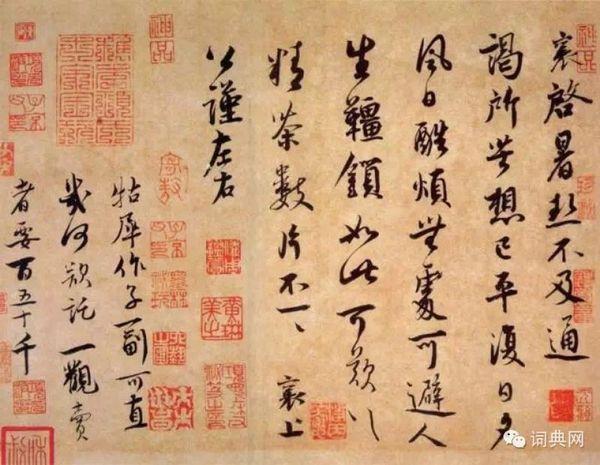 襄啓暑熱不及通
謁所苦想已平復日夕
風日酷煩無處可避人
生韁鎖如此可歎〻
精茶數片不一〻 襄上
公謹左右
牯犀作子一副可直
幾何欲託一觀賣
者要百五十千
神品
词典网